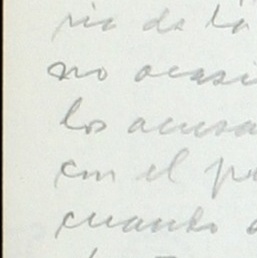 ria de la
no ocasi
los acusa
con el p
cuando